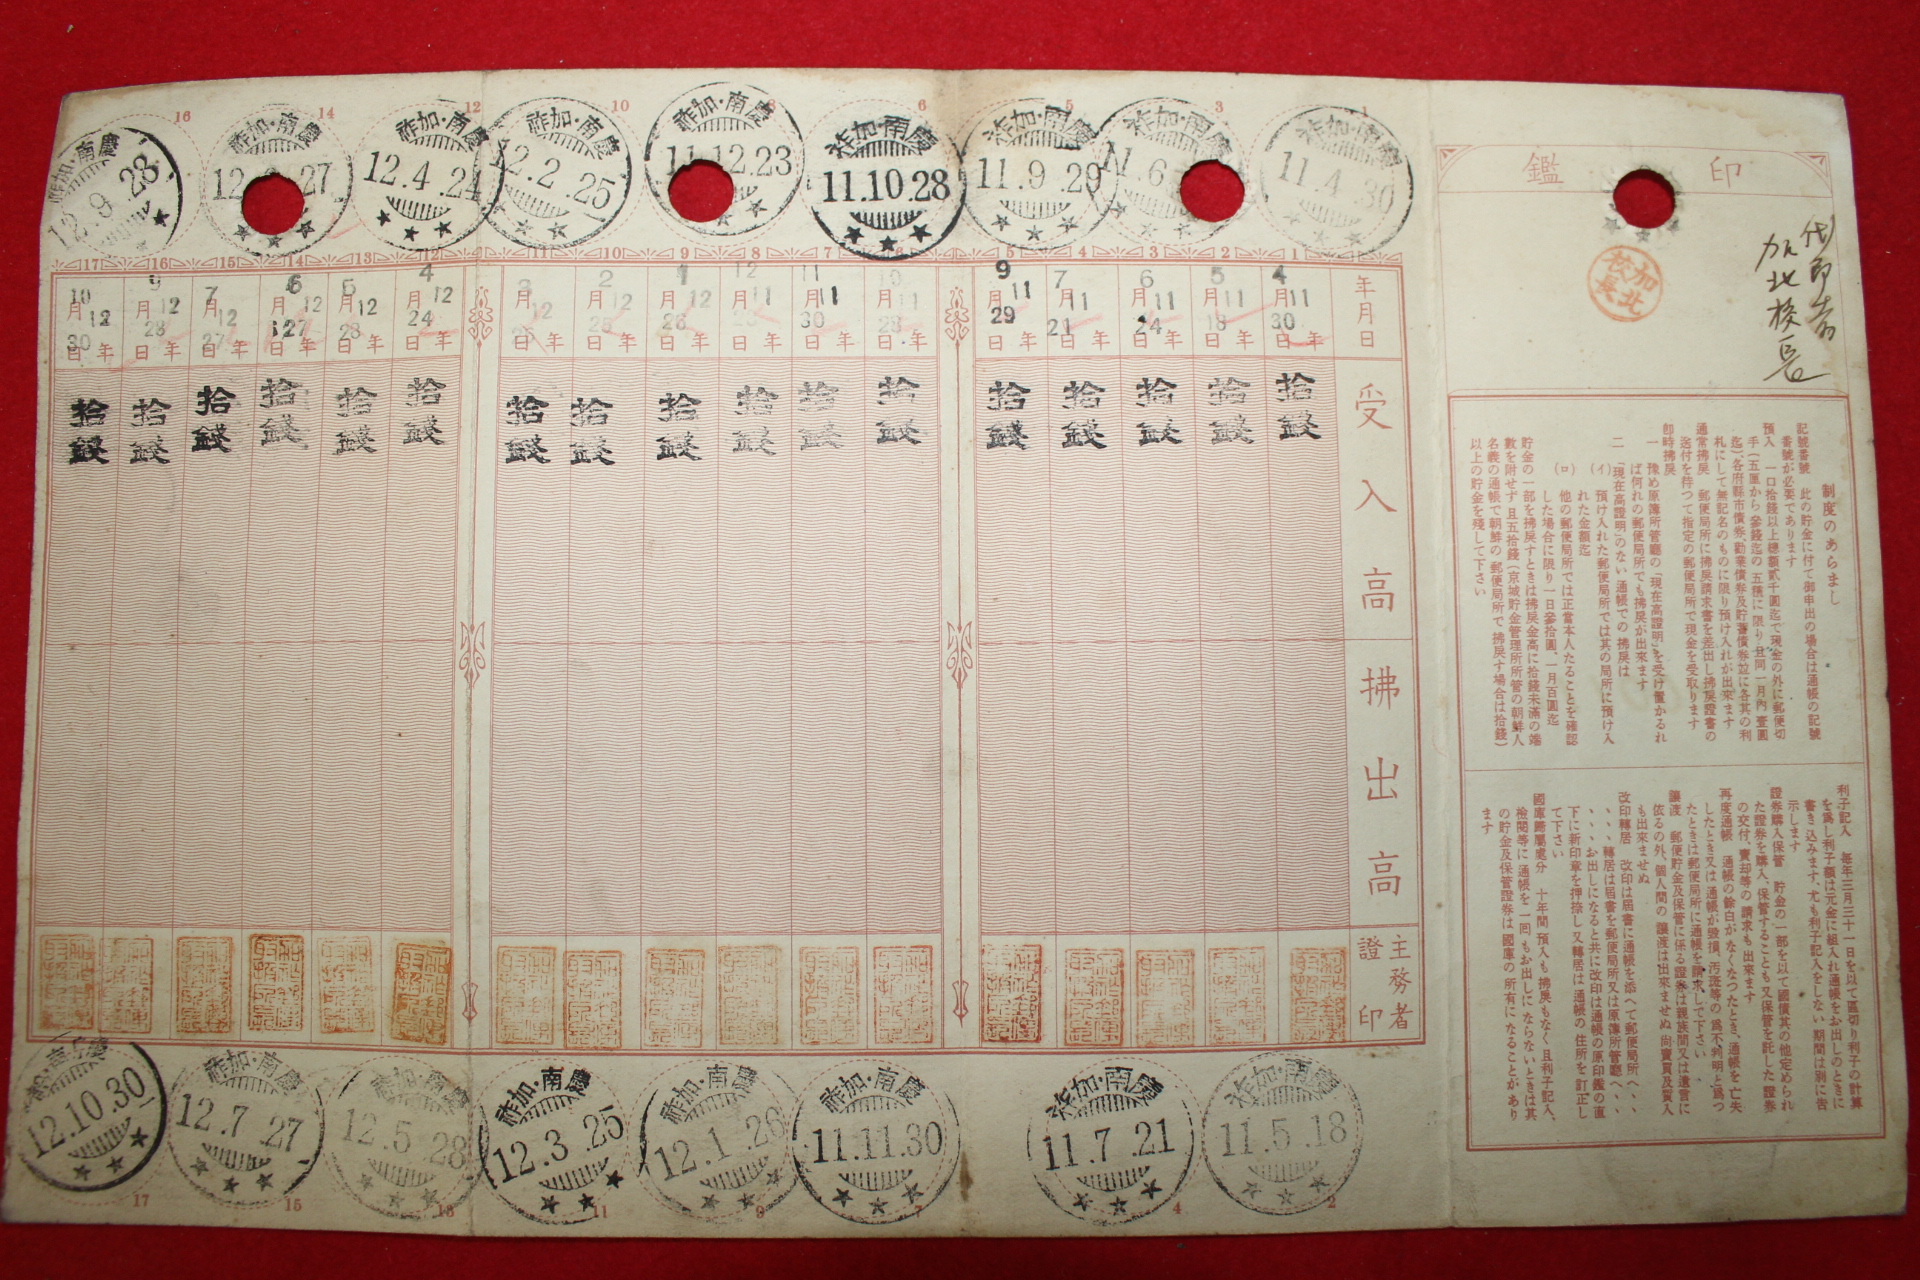 印鑑
代印者
加北校長
加北
校長
制度のあらまし
記號番號 此の貯金に付て御申出の場合は通帳の記號
番號が必要であります
預入 一口拾錢以上總額貳千圓迄で現金の外に郵便切
手(五厘から參錢迄の五種に限り且同一月內壹圓
迄)、各府縣市債券、勸業債券及貯蓄債券竝に各其の利
札にして無記名のものに限り預け入れが出來ます
通常拂戾 郵便局所に拂戾請求書を差出し拂戾證書の
送付を待つて指定の郵便局所で現金を受取ります
卽時拂戾
一 豫め原簿所管廳の「現在高證明」を受け置かるれ
ば何れの郵便局所でも拂戾が出來ます
二 「現在高證明」のない通帳での拂戾は
(イ) 預け入れた郵便局所では其の局所に預け入
れた金額迄
(ロ) 他の郵便局所では正當本人たることを確認
した場合に限り一日參拾圓、一月百圓迄
貯金の一部を拂戾すときは拂戾金高に拾錢未滿の端
數を附せず且五拾錢(京城貯金管理所所管の朝鮮人
名義の通帳で朝鮮の郵便局所で拂戾す場合は拾錢)
以上の貯金を殘して下さい
利子記入 每年三月三十一日を以て區切り利子の計算
を爲し利子額は元金に組入れ通帳をお出しのときに
書き込みます、尤も利子記入をしない期間は別に告
示します
證券購入保管 貯金の一部を以て國債其の他定められ
た證券を購入、保管することも又保管を託した證券
の交付、賣却等の請求も出來ます
再度通帳 通帳の餘白がなくなつたとき、通帳を亡失
したとき又は通帳が毀損、汚斑等の爲不判明と爲つ
たときは郵便局所に通帳を請求して下さい
讓渡 郵便貯金及保管に係る證券は親族間又は遺言に
依るの外、個人間の讓渡は出來ませぬ尙賣買及質入
も出來ませぬ
改印轉居 改印は屆書に通帳を添へて郵便局所へ、、
、、、轉居は屆書を郵便局所又は原簿所管廳へ、、
、、、お出しになると共に改印は通帳の原印鑑の直
下に新印章を押捺し又轉居は通帳の住所を訂正し
て下さい
國庫歸屬處分 十年間預入も拂戾もなく且利子記入、
檢閱等に通帳を一囘もお出しにならないときは其
の貯金及保管證券は國庫の所有になることがあり
ます
年月日
受入高
拂出高
主務者
證印
1
11年4月30日
拾錢
2
11年5月18日
拾錢
3
11年6月24日
拾錢
4
11年7月21日
拾錢
5
11年9月29日
拾錢
6
11年10月28日
拾錢
7
11年11月30日
拾錢
8
11年12月23日
拾錢
9
12年1月26日
拾錢
10
12年2月25日
拾錢
11
12年3月25日
拾錢
12
12年4月24日
拾錢
13
12年5月28日
拾錢
14
12年6月27日
拾錢
15
12年7月27日
拾錢
16
12年9月28日
拾錢
17
12年10月30日
拾錢
1
慶南·加祚
11.4.30
3
慶南·加祚
11.6
5
慶南·加祚
11.9.29
6
慶南·加祚
11.10.28
8
慶南·加祚
11.12.23
10
慶南·加祚
12.2.25
12
慶南·加祚
12.4.24
14
慶南·加祚
12. 27
16
慶南·加祚
12.9.28
2
慶南·加祚
11.5.18
4
慶南·加祚
11.7.21
7
慶南·加祚
11.11.30
9
慶南·加祚
12.1.26
11
慶南·加祚
12.3.25
13
慶南·加祚
12.5.28
15
慶南·加祚
12.7.27
17
慶南·加祚
12.10.30